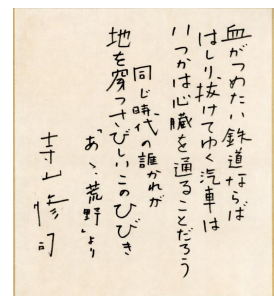 血がつめたい鉄道ならば
はしり抜けてゆく汽車は
いつかは心臓を通ることだろう
同じ時代の誰かれが
地を穿つさびしいこのひびき
「あゝ、荒野」より
寺山修司